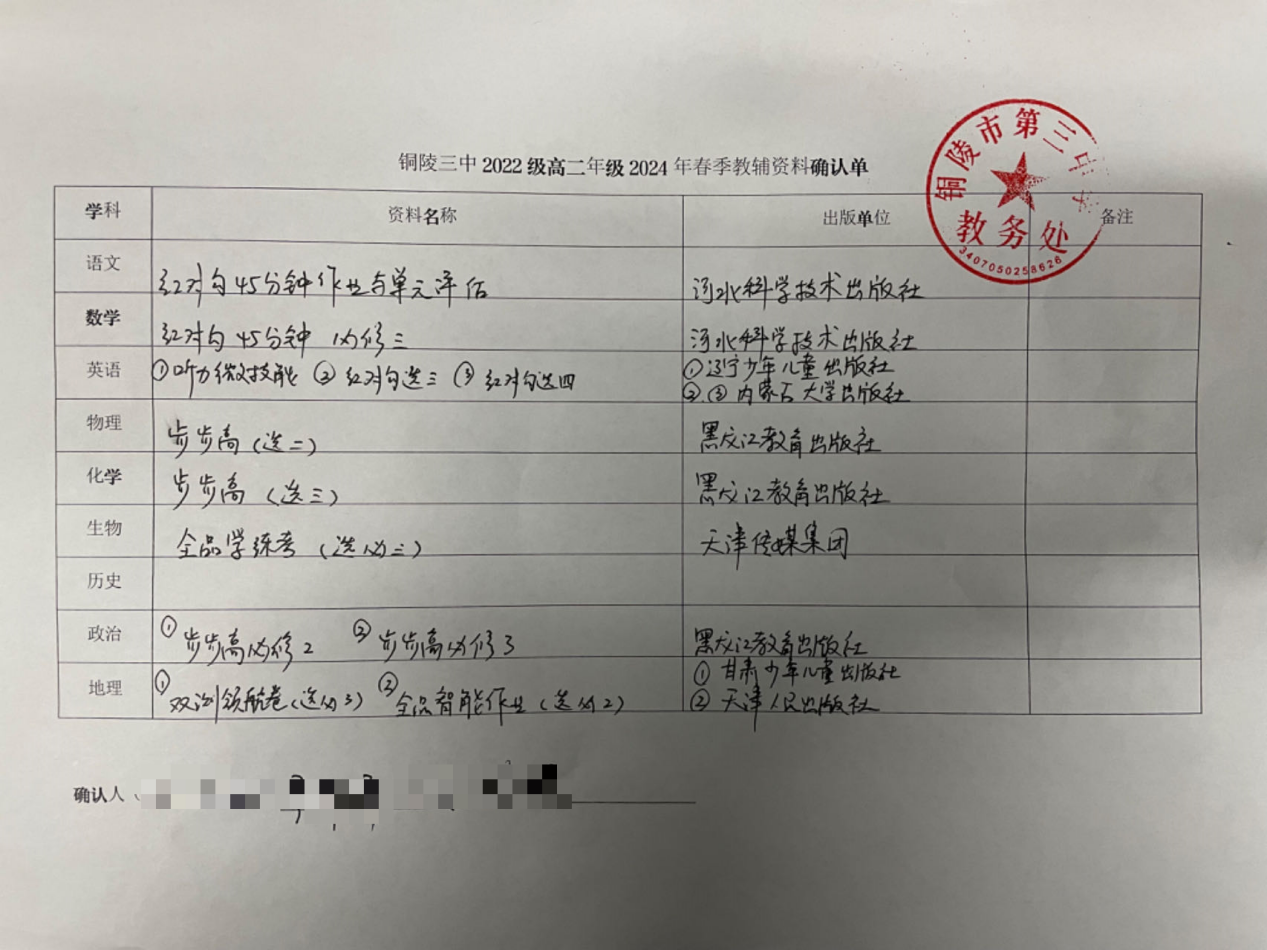 铜陵三中 2022 级高二年级 2024 年春季教辅资料确认单
铜陵市第三中学
教务处
3407050258626
学科 资料名称 出版单位 备注
语文 红对勾45分钟作业与单元评估 河北科学技术出版社
数学 红对勾45分钟 必修三 河北科学技术出版社
英语 ①听力微技能 ②红对勾选三 ③红对勾选四 ①辽宁少年儿童出版社
②.③内蒙古大学出版社
物理 步步高(选二) 黑龙江教育出版社
化学 步步高(选三) 黑龙江教育出版社
生物 全品学练考(选必三) 天津传媒集团
历史
政治 ①步步高必修2 ②步步高必修3 黑龙江教育出版社
地理 ①双测领航卷(选必3) ②全品智能作业(选必2) ①甘肃少年儿童出版社
②天津人民出版社
确认人